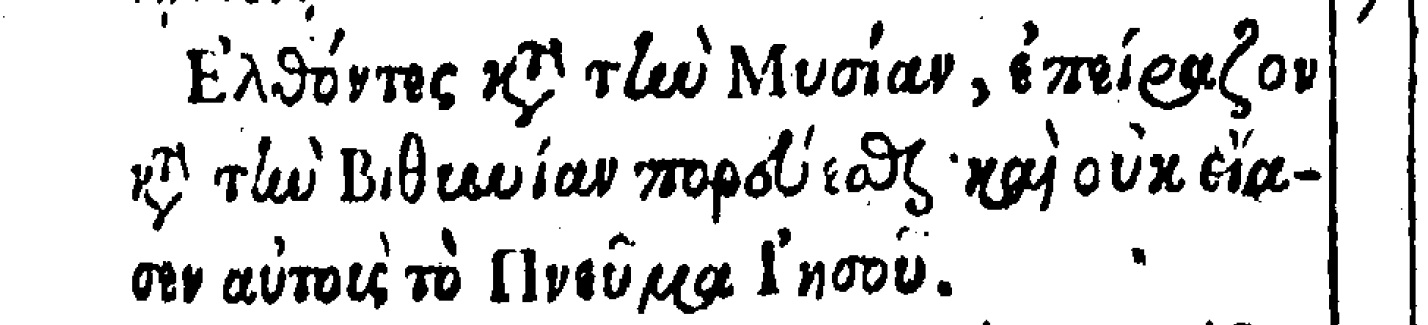 Ἐλθόντες κτ̀ τὴν Μυσίαν, ἐπείραζον
κτ̀ τὴν Βιθυνίαν πορεύεσθαι· καὶ οὐκ εἴα-
σεν αὐτοὺς τὸ Πνεῦμα Ἰησοῦ.